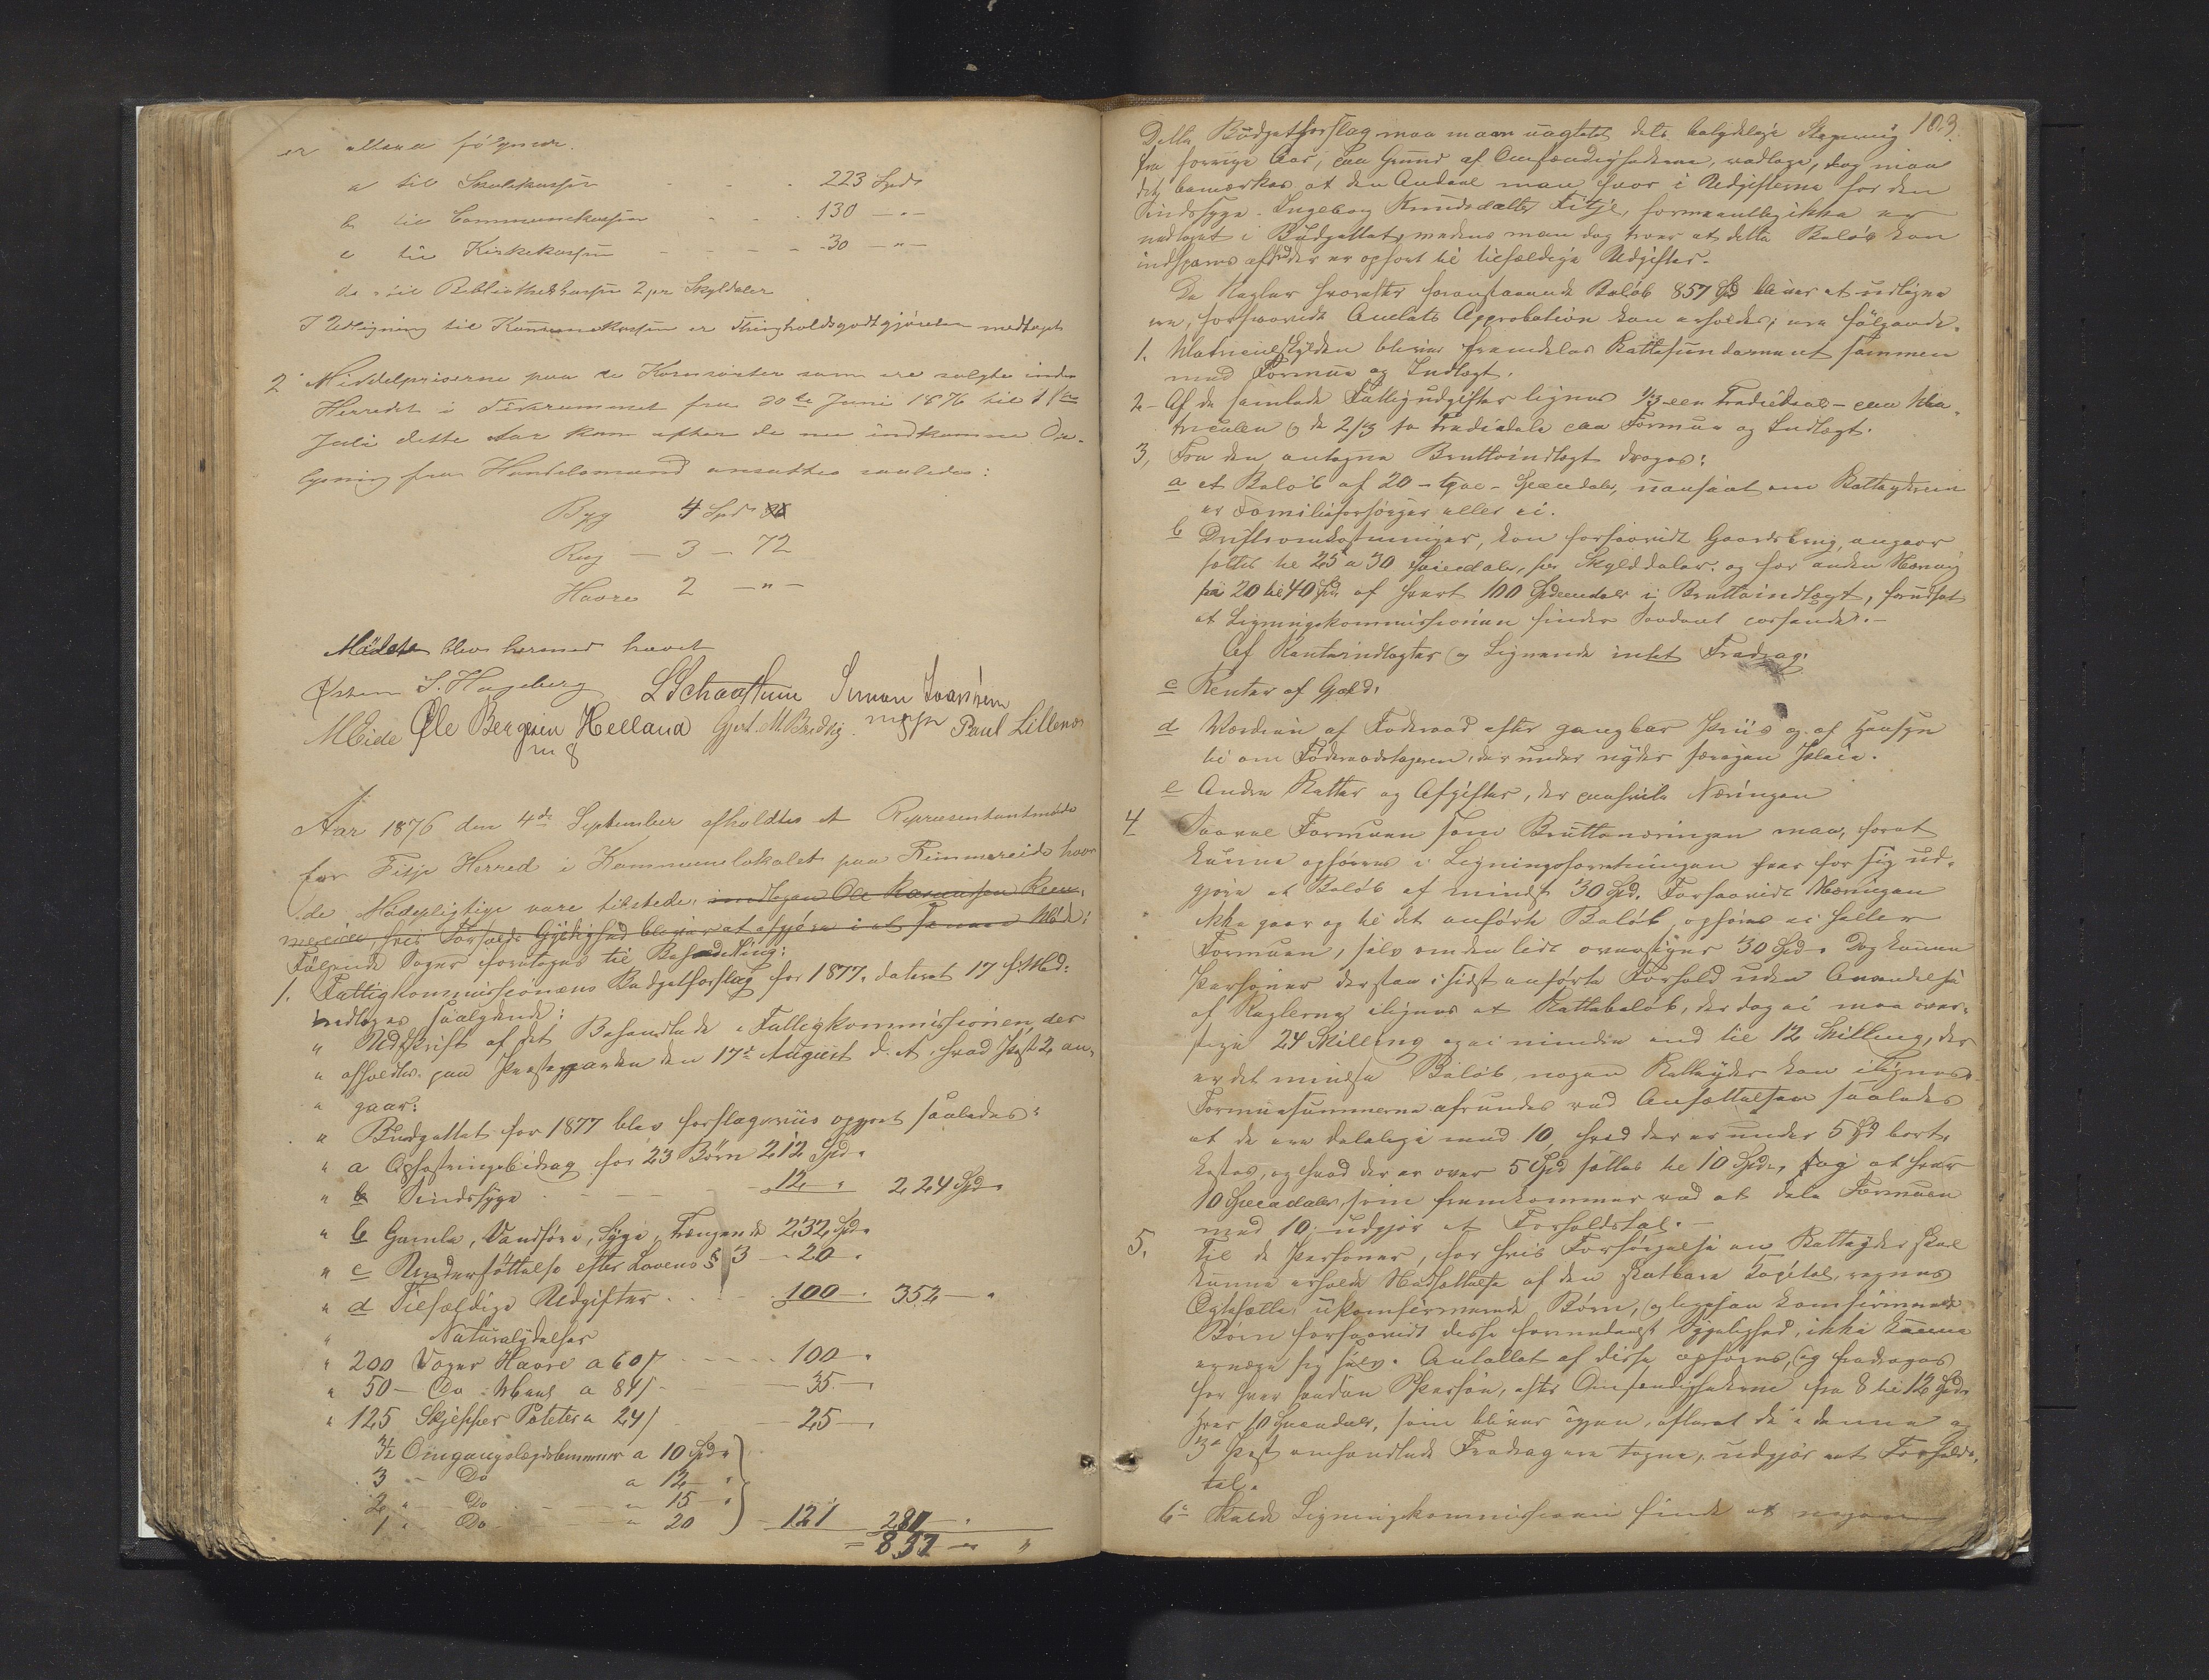 er altsaa følgende.
a til Skolekassen - - . 223 Spd
b til Communekassen - - . 130 — " —
c til Kirkekassen - - - - 30 — " —
da til Bibliothekkassen 2 pr Skyldaler
I Udligning til Kommunekassen er Thingholdsgodtgjørelsen medtaget
2 Middelpriserne paa de Kornsorter som ere solgte inden
Herredet i Tidsrummet fra 30te Juni 1876 til
Juli dette Aar kom efter de nu indkomne Op-
lysning fra Handelsmænd ansattes saaledes:
Byg 4 Spd
Rug — 3 — 72
Havre 2 — " —
Mødet blev hermed hævet
Østen S. Hageberg L Schaathun Simon Ivarsen
M Eide Ole Bergesen Helland Gjert M. Bredvig mfp Paul Lillenes
m f
Aar 1876 den 4de September afholdtes et Repræsentantmøde
for Fitje Herred i Kommunelokalet paa Rimmereide hvor
de Mødepligtige vare tilstede, undtagen Ole Rasmussen Rem-
mereide, hvis Forfalds Gyldighed bliver at afgjøre i et senere Møde:
Følgende Sager foretoges til Behandling:
1. Fattigkommissionens Budgetforslag for 1877, dateret 17 f. Md.
indtages saalydende:
" Udskrift af det Behandlede i Fattigkommissionen, der
" afholdtes paa Præstegaarden den 17de August d. A. hvad Post 2 an-
" gaar:
" Budgettet for 1877 blev forslagsviis opgjort saaledes:
" a Opfostringsbidrag for 23 Børn 212 Spd.
" b Sindssyge - - - - 12 " 224 Spd
" b Gamle, Vanføre, Syge, Trængende 232 Spd.
" c Understøttelse efter Lovens § 3 — 20 .
" d Tilfældige Udgifter . . - . 100 — . 352 — .
" Naturalydelser
" 200 Voger Havre a 60 s - - - - 100 — .
" 50 — Do Meel a 84 s - — 35 — .
" 125 Skjepper Poteter a 24 s — 25 — .
Omgangslægdslemmer a 10 Spd.
3 - Do a 12 — .
2 " - Do - — " 15 — .
1 " - Do - — " 20 — 121 281 — .
= 857 — " "
103.
Dette Budgetforslag maa man uagtet dets betydelige Stegning
fra forrige Aar, paa Grund af Omstændighederne, vedtage, dog maa
det bemærkes at den Andeel man har i Udgifterne for den
Sindssyge Ingeborg Knudsdatter Fitje, formeentlig ikke er
medtaget i Budgettet, medens man dog tror at dette Beløb kan
indspares af hvad der er opført til tilfældige Udgifter.
De Regler hvorefter foranstaaende Beløb 857 Spd bliver at udligne
ere, forsaavidt Amtets Approbation kan erholdes, ere følgende.
1. Matriculskylden bliver fremdeles Skattefundament sammen
med Formue og Indtægt.
2 - Af de samlede Fattigudgifter lignes 1/3 - een Trediedeel - paa Ma-
triculen og de 2/3 to Trediedele paa Formue og Indtægt.
3, Fra den antagne Bruttoindtægt drages:
a et Beløb af 20 - tyve - Speciedaler, uanseet om Skatteyderen
er Familieforsørger eller ei.
b Driftsomkostninger, kan forsaavidt Gaardsbrug angaar
sættes til 25 a 30 Speciedaler, per Skylddaler og for anden Næring
fra 20 til 40 Spd. af hvert 100 Speciedaler i Bruttoindtægt, forudsat
at Ligningskommissionen finder saadant passende. —
Af Renteindtægter og Lignende intet Fradrag.
c Renter af Gjæld.
d Værdien af Føderaad efter gangbar Priis og af Hensyn
til om Føderaadstageren, der under nyder særegen Pleie.
e Andre Skatter og Afgifter, der paahvile Næringen
4 Saavel Formuen som Bruttonæringen maa, forat
kunne opføres i Ligningsforretningen hver for sig ud-
gjøre et Beløb af mindst 30 Spd. Forsaavidt Næringen
ikke gaar op til det anførte Beløb, opføres ei heller
Formuen, selv om den lidt overstiger 30 Spd. Dog kunne
Personer der staa i sidst anførte Forhold uden Anvendelse
af Reglerne ilignes et Skattebeløb, der dog ei maa over-
stige 24 Skilling og ei mindre end til 12 Skilling, der
er det mindste Beløb nogen Skatteyder kan ilignes.
Formuesummerne afrundes ved Ansættelsen saaledes
at de ere delelige med 10, hvad der er under 5 Spd bort-
kastes, og hvad der er over 5 Spd sættes til 10 Spd., dog at hver
10 Speciedaler som fremkommer ved at dele Formuen
med 10, udgjør et Forholdstal. —
5. Til de Personer, for hvis Forsørgelse en Skatteyder skal
kunne erholde Nedsættelse af den skatbare Kapital, regnes
Ægtefælle, ukonfirmerede Børn, og ligesaa konfirmerede
Børn forsaavidt disse formedelst Sygelighed, ikke kunne
ernære sig selv. Antallet af disse opføres, og fradrages
for hver saadan Person, efter Omstændighederne fra 8 til 12 Spd.
Hver 10 Speciedaler, som bliver igjen, efterat de i denne og
3die Post omhandlede Fradrag ere tagne, udgjør et Forholds-
tal.
6 - Skulde Ligningskommissionen finde at nogen